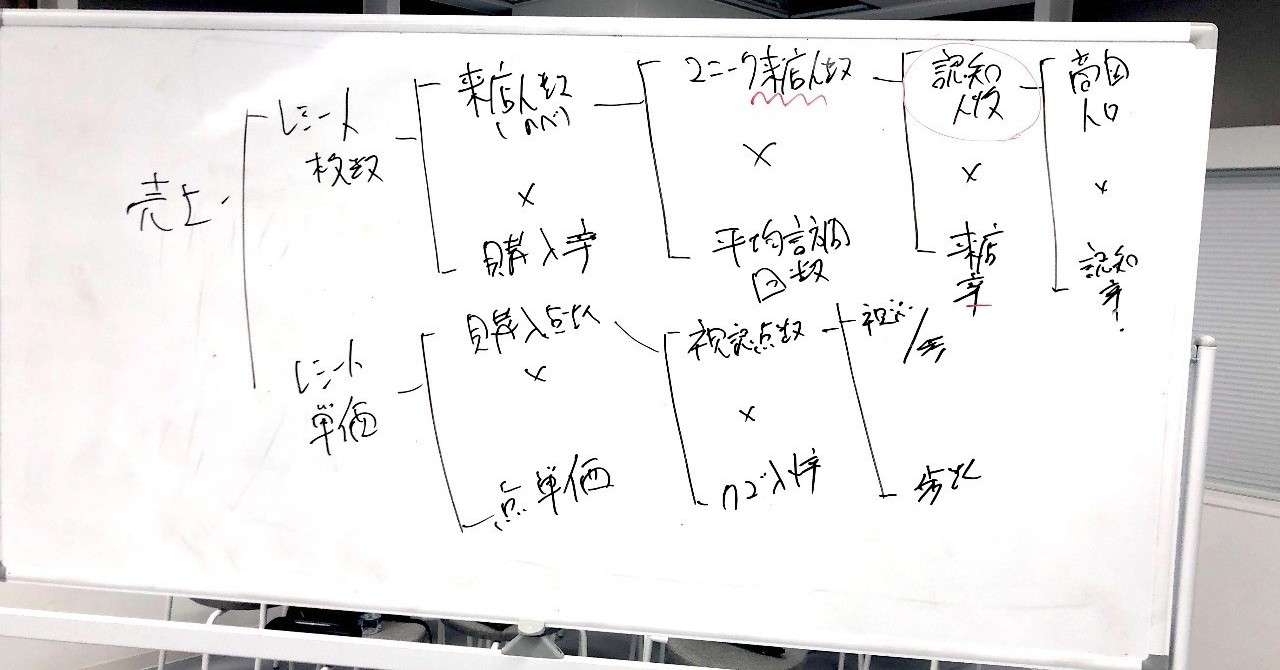 売上
レシート
枚数
来店人数
(のべ)
×
購入率
ユニーク来店人数
×
平均訪問
回数
認知
人数
×
来店
率
商圏
人口
×
認知
率!
レシート
単価
購入点数
×
点単価
視認点数
×
カゴ入率
歩数